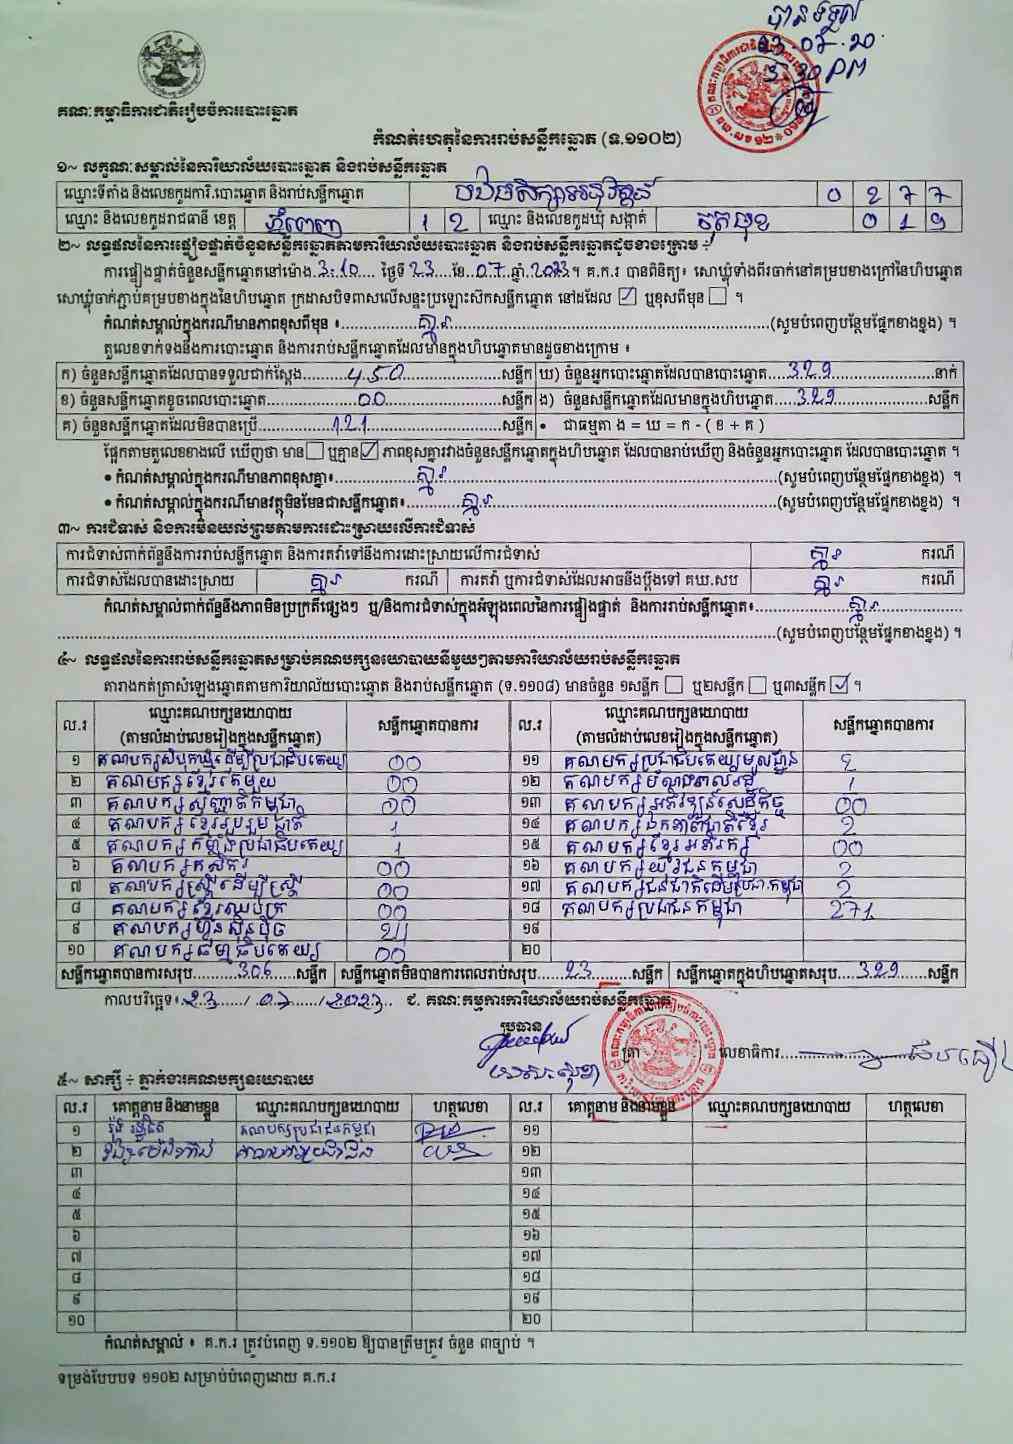 បានទទួល
23.07.20
3:30 PM
គណៈកម្មាធិការជាតិរៀបចំការបោះឆ្នោត
កំណត់ហេតុនៃការរាប់សន្លឹកឆ្នោត (ទ.១១០២)
១~ លក្ខណៈសម្គាល់នៃការិយាល័យបោះឆ្នោត និងរាប់សន្លឹកឆ្នោត
ឈ្មោះទីតាំង និងលេខកូដការិ.បោះឆ្នោត និងរាប់សន្លឹកឆ្នោត 0 2 7 7
ឈ្មោះ និងលេខកូដរាជធានី ខេត្ត ភ្នំពេញ 1 2 ឈ្មោះ និងលេខកូដឃុំ សង្កាត់ ទួតមុខ 0 1 9
២~ លទ្ធផលនៃការផ្ទៀងផ្ទាត់ចំនួនសន្លឹកឆ្នោតតាមការិយាល័យបោះឆ្នោត និងរាប់សន្លឹកឆ្នោតដូចខាងក្រោម ÷
ការផ្ទៀងផ្ទាត់ចំនួនសន្លឹកឆ្នោតនៅម៉ោង 3:10 ថ្ងៃទី 23 ខែ 07 ឆ្នាំ 2023 ។ គ.ក.រ បានពិនិត្យ៖ សោឃ្លុំទាំងពីរចាក់នៅគម្របខាងក្រៅនៃហិបឆ្នោត
សោឃ្លុំចាក់ភ្ជាប់គម្របខាងក្នុងនៃហិបឆ្នោត ក្រដាសបិទពាសលើសន្ទះប្រឡោះស៊កសន្លឹកឆ្នោត នៅដដែល ☑ ឬខុសពីមុន ☐ ។
កំណត់សម្គាល់ក្នុងករណីមានភាពខុសពីមុន ៖ គ្មាន (សូមបំពេញបន្ថែមផ្នែកខាងខ្នង) ។
តួលេខទាក់ទងនឹងការបោះឆ្នោត និងការរាប់សន្លឹកឆ្នោតដែលមានក្នុងហិបឆ្នោតមានដូចខាងក្រោម ៖
ក) ចំនួនសន្លឹកឆ្នោតដែលបានទទួលជាក់ស្តែង 450 សន្លឹក ឃ) ចំនួនអ្នកបោះឆ្នោតដែលបានបោះឆ្នោត 329 នាក់
ខ) ចំនួនសន្លឹកឆ្នោតខូចពេលបោះឆ្នោត 00 សន្លឹក ង) ចំនួនសន្លឹកឆ្នោតដែលមានក្នុងហិបឆ្នោត 329 សន្លឹក
គ) ចំនួនសន្លឹកឆ្នោតដែលមិនបានប្រើ 121 សន្លឹក • ជាធម្មតា ង = ឃ = ក - ( ខ + គ )
ផ្អែកតាមតួលេខខាងលើ ឃើញថា មាន ☐ ឬគ្មាន ☑ ភាពខុសគ្នារវាងចំនួនសន្លឹកឆ្នោតក្នុងហិបឆ្នោត ដែលបានរាប់ឃើញ និងចំនួនអ្នកបោះឆ្នោត ដែលបានបោះឆ្នោត ។
• កំណត់សម្គាល់ក្នុងករណីមានភាពខុសគ្នា៖ គ្មាន (សូមបំពេញបន្ថែមផ្នែកខាងខ្នង) ។
• កំណត់សម្គាល់ក្នុងករណីមានវត្ថុមិនមែនជាសន្លឹកឆ្នោត៖ គ្មាន (សូមបំពេញបន្ថែមផ្នែកខាងខ្នង) ។
៣~ ការជំទាស់ និងការមិនយល់ព្រមតាមការដោះស្រាយលើការជំទាស់
ការជំទាស់ពាក់ព័ន្ធនឹងការរាប់សន្លឹកឆ្នោត និងការតវ៉ាទៅនឹងការដោះស្រាយលើការជំទាស់ គ្មាន ករណី
ការជំទាស់ដែលបានដោះស្រាយ គ្មាន ករណី ការតវ៉ា ឬការជំទាស់ដែលអាចនឹងប្តឹងទៅ គឃ.សប គ្មាន ករណី
កំណត់សម្គាល់ពាក់ព័ន្ធនឹងភាពមិនប្រក្រតីផ្សេងៗ ឬ/និងការជំទាស់ក្នុងអំឡុងពេលនៃការផ្ទៀងផ្ទាត់ និងការរាប់សន្លឹកឆ្នោត៖ គ្មាន
(សូមបំពេញបន្ថែមផ្នែកខាងខ្នង) ។
៤~ លទ្ធផលនៃការរាប់សន្លឹកឆ្នោតសម្រាប់គណបក្សនយោបាយនីមួយៗតាមការិយាល័យរាប់សន្លឹកឆ្នោត
តារាងកត់ត្រាសំឡេងឆ្នោតតាមការិយាល័យបោះឆ្នោត និងរាប់សន្លឹកឆ្នោត (ទ.១១០៨) មានចំនួន ១សន្លឹក ☐ ឬ២សន្លឹក ☐ ឬ៣សន្លឹក ☑ ។
ល.រ ឈ្មោះគណបក្សនយោបាយ (តាមលំដាប់លេខរៀងក្នុងសន្លឹកឆ្នោត) សន្លឹកឆ្នោតបានការ ល.រ ឈ្មោះគណបក្សនយោបាយ (តាមលំដាប់លេខរៀងក្នុងសន្លឹកឆ្នោត) សន្លឹកឆ្នោតបានការ
១ គណបក្សសំបុកឃ្មុំដើម្បីប្រជាធិបតេយ្យ 00 ១១ គណបក្សប្រជាធិបតេយ្យមូលដ្ឋាន 2
២ គណបក្សខ្មែរតែមួយ 00 ១២ គណបក្ស 1
៣ គណបក្សសញ្ជាតិកម្ពុជា 00 ១៣ គណបក្សអភិវឌ្ឍន៍សេដ្ឋកិច្ច 00
៤ គណបក្សខ្មែររួបរួមជាតិ 1 ១៤ គណបក្សឯកភាពជាតិខ្មែរ 2
៥ គណបក្សកម្លាំងប្រជាធិបតេយ្យ 1 ១៥ គណបក្សខ្មែរអភិរក្ស 00
៦ គណបក្សកសិករ 00 ១៦ គណបក្សយុវជនកម្ពុជា 2
៧ គណបក្សស្ត្រីដើម្បីស្ត្រី 00 ១៧ គណបក្សជនជាតិដើមប្រជា.កម្ពុជា 2
៨ គណបក្សខ្មែរឈប់ក្រ 00 ១៨ គណបក្សប្រជាជនកម្ពុជា 271
៩ គណបក្សហ៊្វុនស៊ិនប៉ិច 24 ១៩
១០ គណបក្សធម្មាធិបតេយ្យ 00 ២០
សន្លឹកឆ្នោតបានការសរុប 306 សន្លឹក សន្លឹកឆ្នោតមិនបានការពេលរាប់សរុប 23 សន្លឹក សន្លឹកឆ្នោតក្នុងហិបឆ្នោតសរុប 329 សន្លឹក
កាលបរិច្ឆេទ៖ 23 / 07 / 2023 ជ. គណៈកម្មការការិយាល័យរាប់សន្លឹកឆ្នោត
ប្រធាន
ត្រា លេខាធិការ
៥~ សាក្សី ÷ ភ្នាក់ងារគណបក្សនយោបាយ
ល.រ គោត្តនាម និងនាមខ្លួន ឈ្មោះគណបក្សនយោបាយ ហត្ថលេខា ល.រ គោត្តនាម និងនាមខ្លួន ឈ្មោះគណបក្សនយោបាយ ហត្ថលេខា
១ គណបក្សប្រជាជនកម្ពុជា ១១
២ ១២
៣ ១៣
៤ ១៤
៥ ១៥
៦ ១៦
៧ ១៧
៨ ១៨
៩ ១៩
១០ ២០
កំណត់សម្គាល់ ៖ គ.ក.រ ត្រូវបំពេញ ទ.១១០២ ឱ្យបានត្រឹមត្រូវ ចំនួន ៣ច្បាប់ ។
ទម្រង់បែបបទ ១១០២ សម្រាប់បំពេញដោយ គ.ក.រ